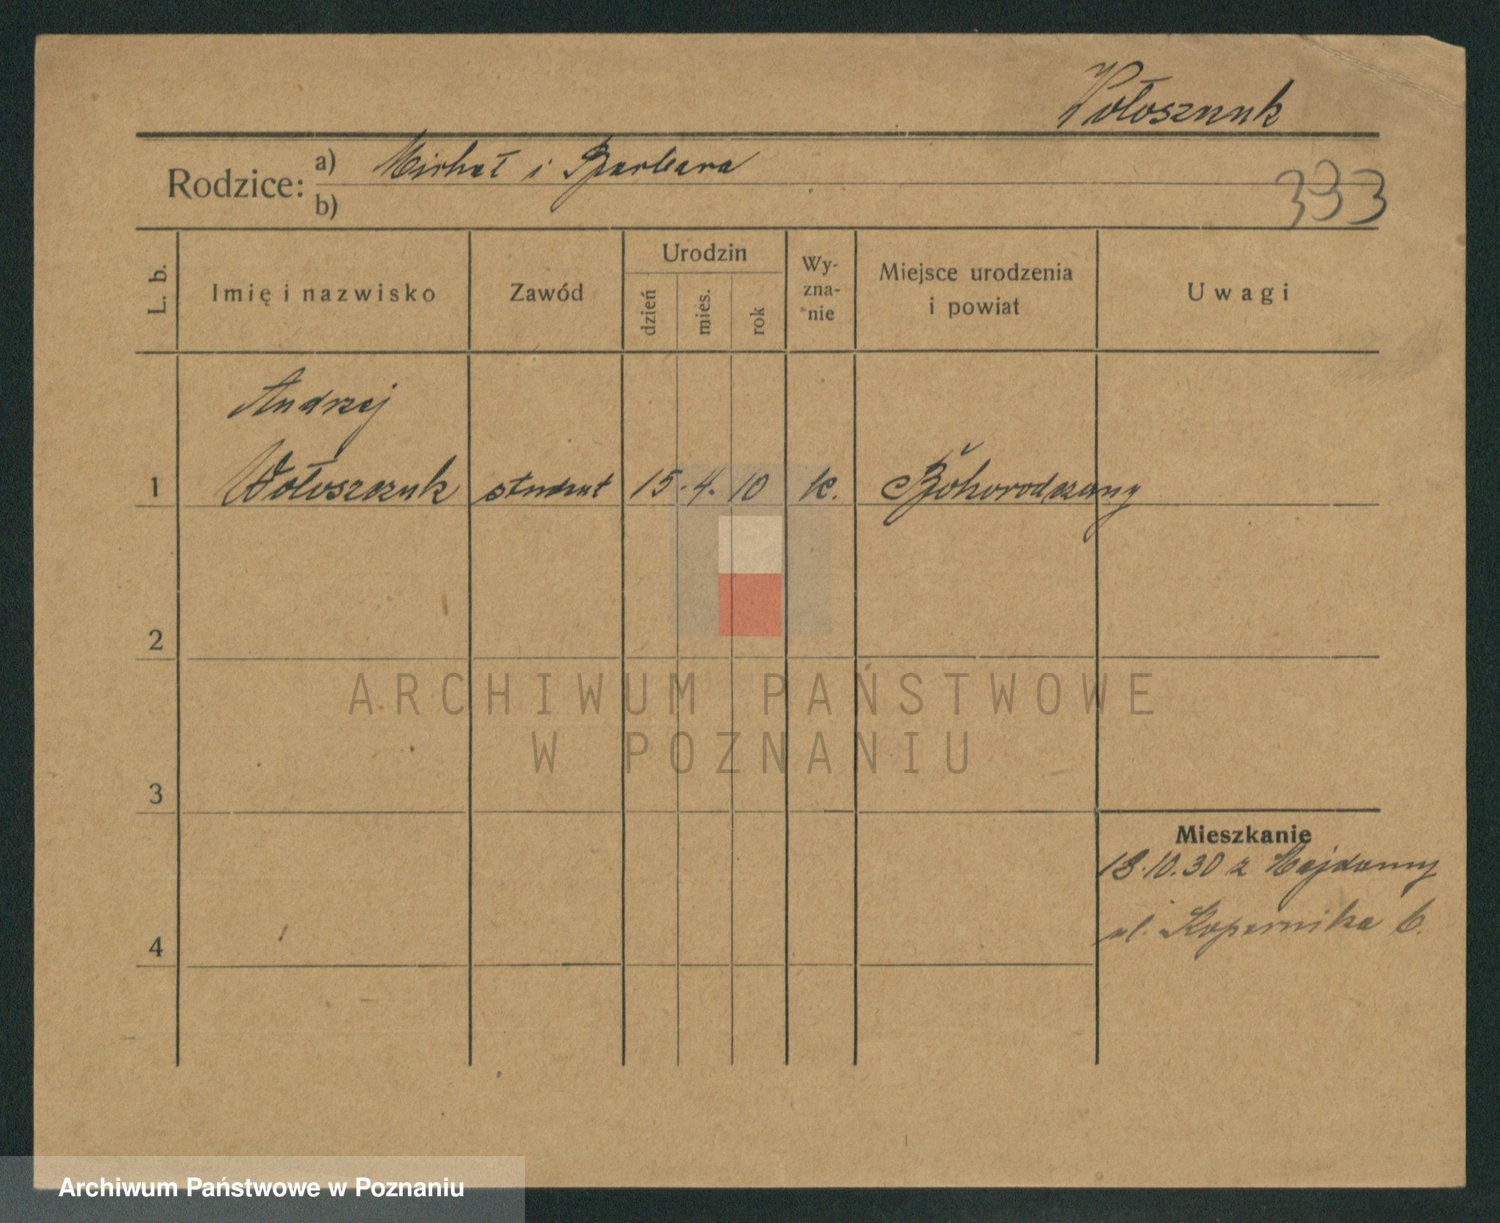 Wołoszuk
Rodzice: a) Michał i Barbara
b)
333
L. b. Imię i nazwisko Zawód Urodzin dzień mies. rok Wy-zna-nie Miejsce urodzenia i powiat Uwagi
Andrzej
1 Wołoszczuk student 15. 4. 10 k. Bohorodczany
2
ARCHIWUM PAŃSTWOWE
W POZNANIU
3
Mieszkanie
18.10.30 z
ul. Kopernika 6.
4
Archiwum Państwowe w Poznaniu